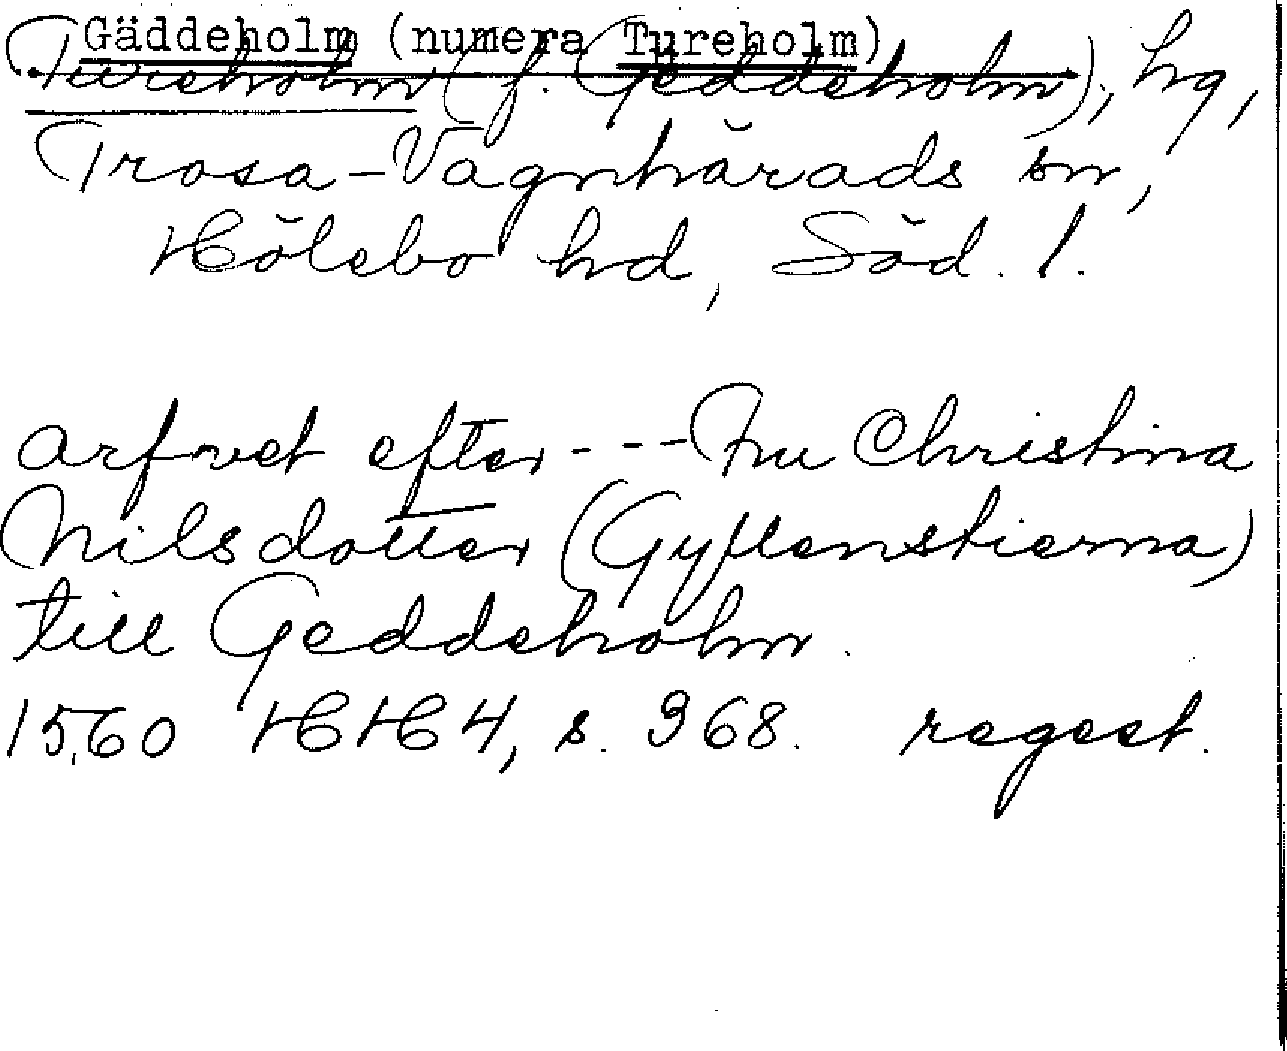 Gäddeholm (numera Tureholm)
Tureholm (f. Geddeholm), hg,
Trosa-Vagnhärads sn,
Hölebo hd, Söd. l.
arfvet efter --- Fru Christina
Nilsdotter (Gyllenstierna)
till Geddeholm.
1560 HH 4, s. 368. regest.